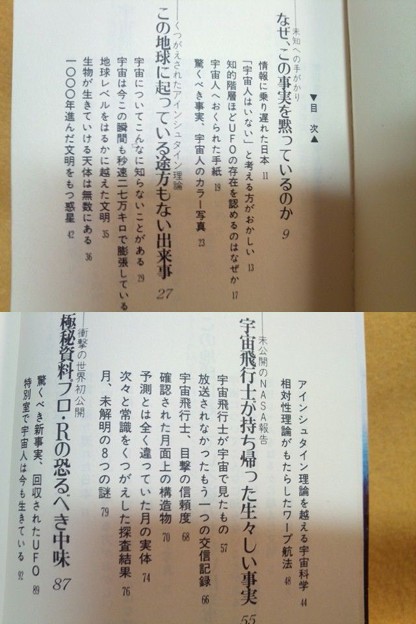 ▼目 次▲
未知への手がかり
なぜ、この事実を黙っているのか 9
情報に乗り遅れた日本 11
「宇宙人はいない」と考える方がおかしい 13
知的階層ほどUFOの存在を認めるのはなぜか 17
宇宙人へおくられた手紙 19
驚くべき事実、宇宙人のカラー写真 23
くつがえされたアインシュタイン理論
この地球に起っている途方もない出来事 27
宇宙についてこんなに知らないことがある 29
宇宙は今この瞬間も秒速二七万キロで膨張している
地球レベルをはるかに越えた文明 35
生物が生きていける天体は無数にある 36
一〇〇〇年進んだ文明をもつ惑星 42
アインシュタイン理論を越える宇宙科学 44
相対性理論がもたらしたワープ航法 48
未公開のNASA報告
宇宙飛行士が持ち帰った生々しい事実 55
宇宙飛行士が宇宙で見たもの 57
放送されなかったもう一つの交信記録 66
宇宙飛行士、目撃の信頼度 68
確認された月面上の構造物 70
予測とは全く違っていた月の実体 74
次々と常識をくつがえした探査結果 76
月、未解明の8つの謎 79
衝撃の世界初公開
極秘資料プロ・Rの恐るべき中味 87
驚くべき新事実、回収されたUFO 89
特別室で宇宙人は今も生きている 92